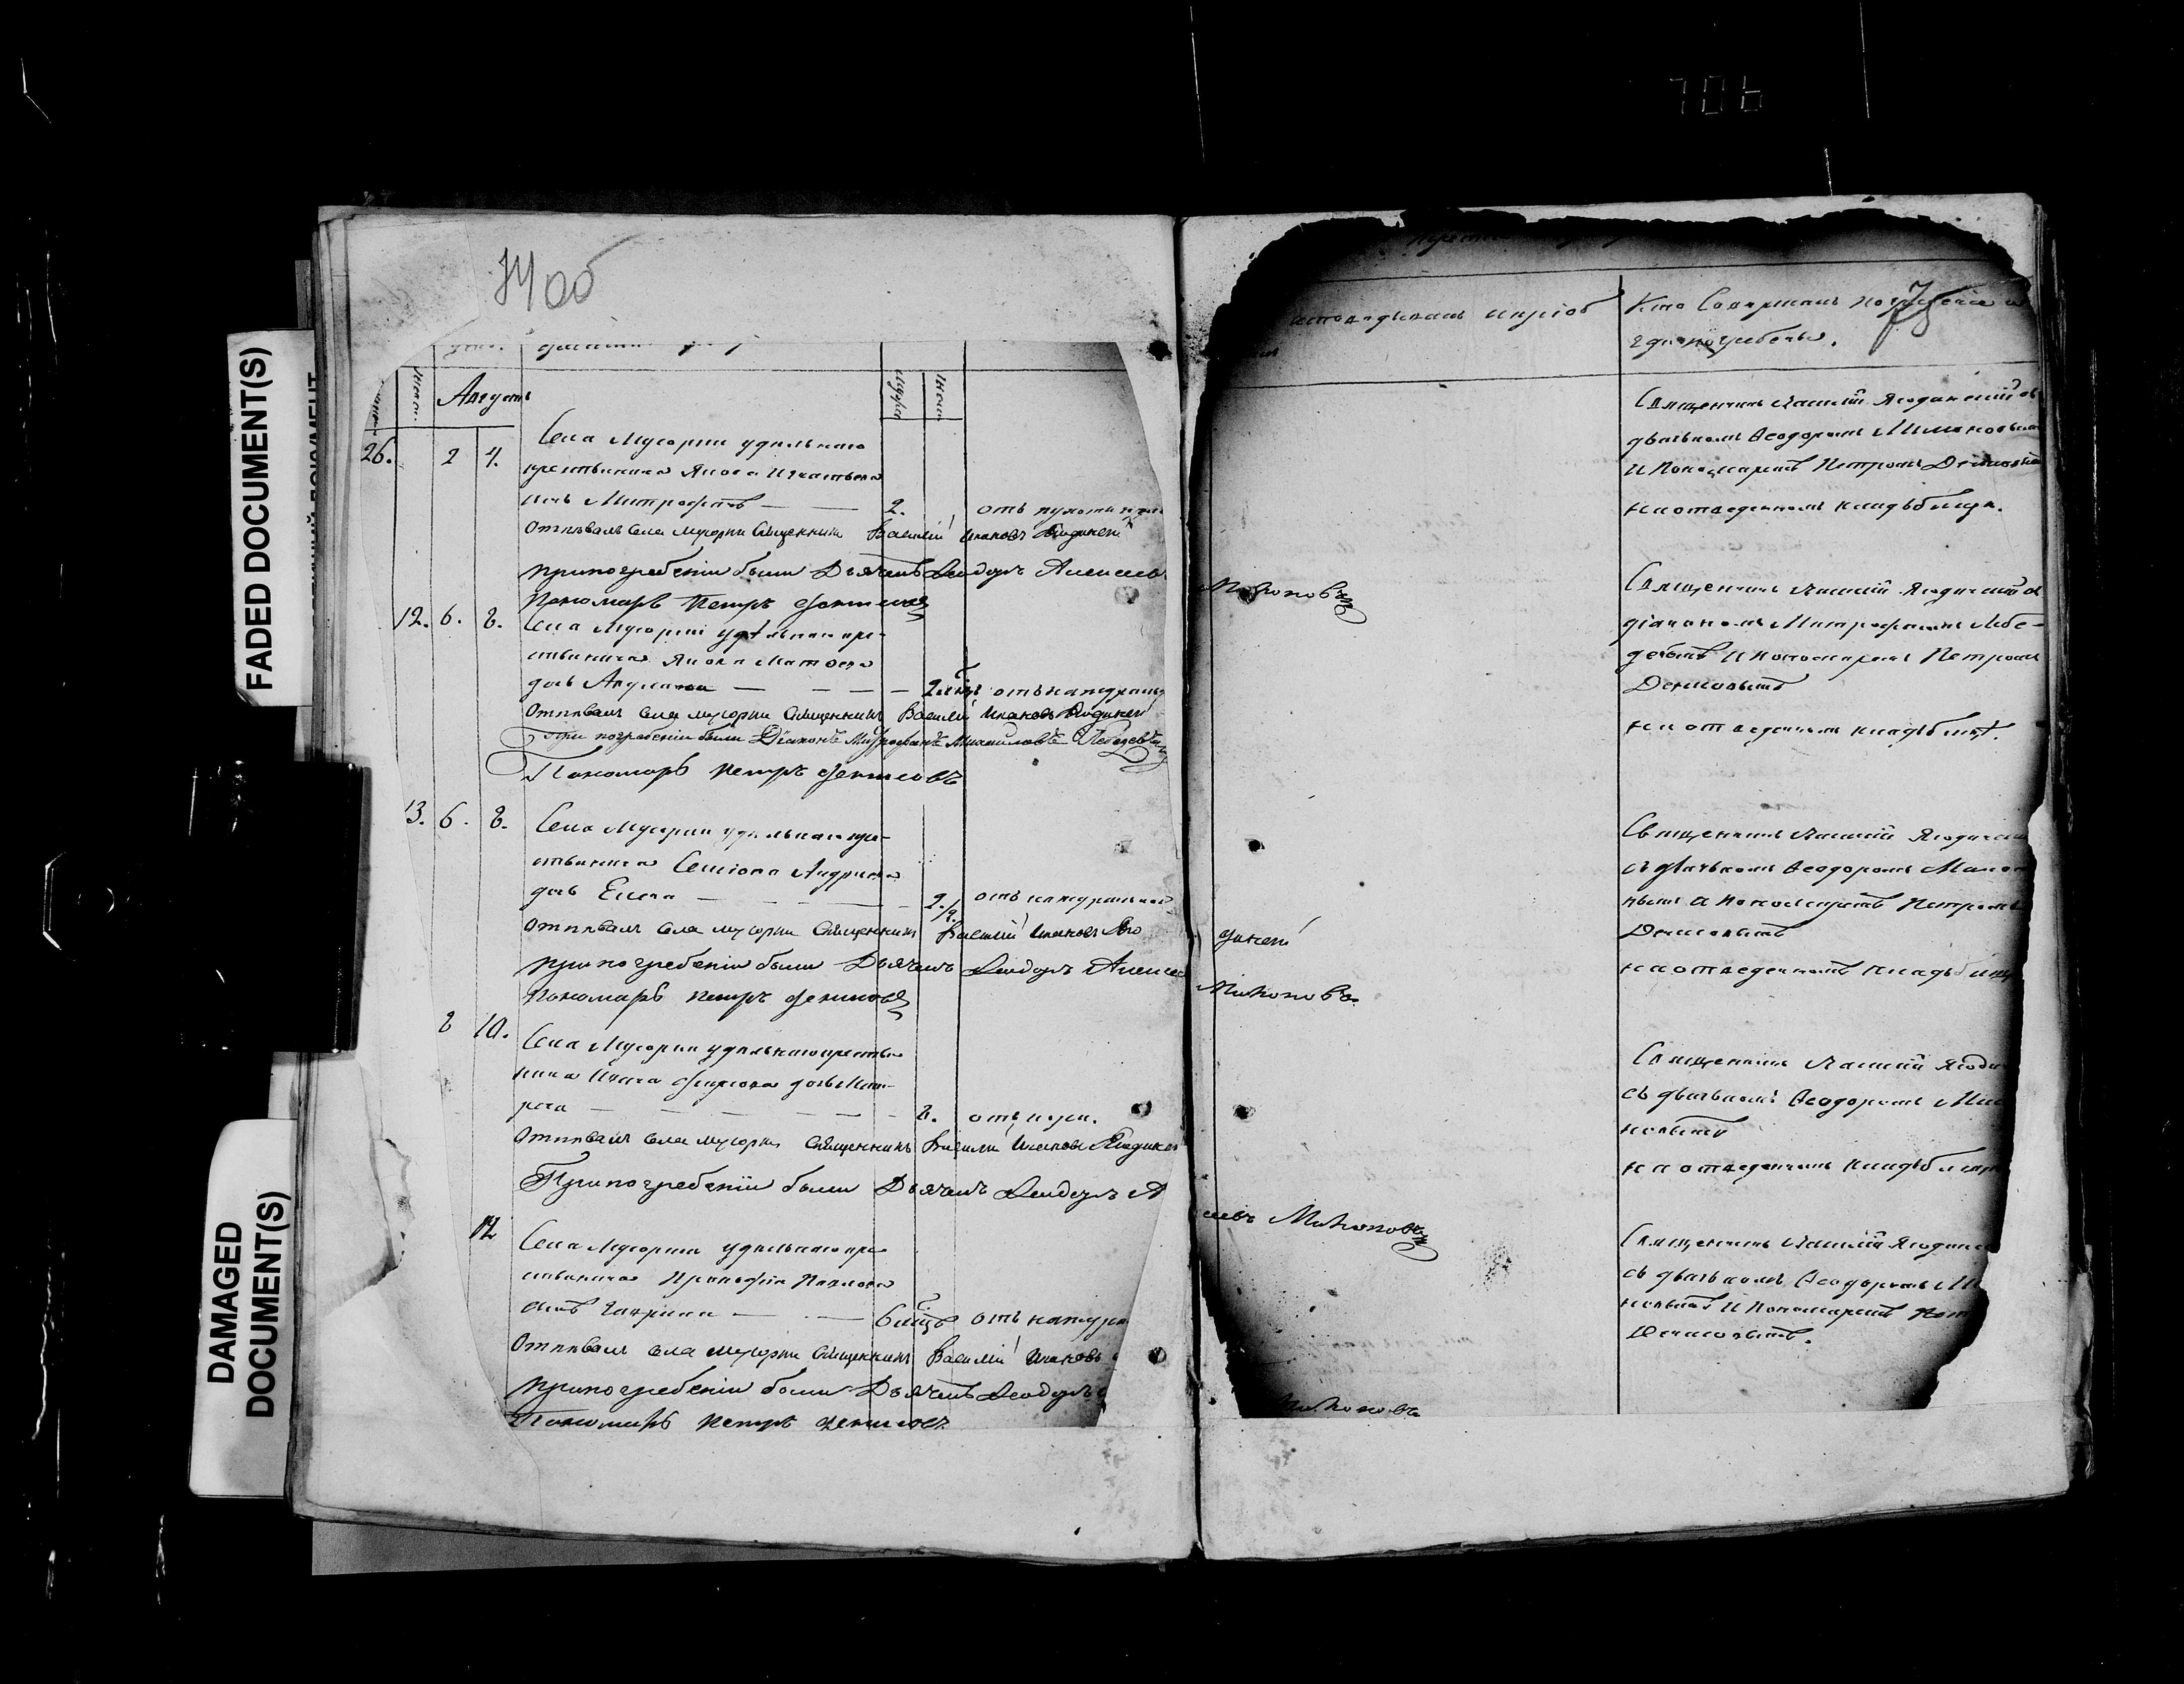 706
FADED DOCUMENT(S)
DAMAGED
DOCUMENT(S)
74об
Августъ
26. 2 4. Села Мусорки удѣльнаго
крестьянина Якова Игнатьева
сынъ Митрофанъ — 2. отъ
Отпѣвалъ села Мусорки Священникъ Василій Ивановъ Ягодинскій
при погребеніи были Дьячекъ Феодоръ Алексѣевъ
Пономарь Петръ Денисовъ
12. 6. 8. Села Мусорки удѣльнаго кре-
стьянина Якова Матвева
дочь Акулина — — — отъ натуральной
Отпѣвалъ села Мусорки Священникъ Василій Ивановъ Ягодинскій
При погребеніи были Діаконъ Митрофанъ Михайловъ Лебедевъ
Пономарь Петръ Денисовъ
13. 6. 8. Села Мусорки удѣльнаго кре-
стьянина Семіона Андреева
дочь Елена — — — 2. отъ натуральной
Отпѣвалъ села Мусорки Священникъ Василій Ивановъ Яго
при погребеніи были Дьячекъ Феодоръ Алексѣ
Пономарь Петръ Денисовъ
8 10. Села Мусорки удѣльнаго крестья-
нина Ивана дочь
— — — 2. отъ кори.
Отпѣвалъ села Мусорки Священникъ Василій Ивановъ Ягодинскій
При погребеніи были Дьячекъ Феодоръ А
12 Села Мусорки удѣльнаго кре-
стьянина Прокофія Павлова
сынъ Гавріилъ — 6 мѣць отъ натура
Отпѣвалъ села Мусорки Священникъ Василій Ивановъ
при погребеніи были Дьячекъ Феодоръ
Пономарь Петръ Денисовъ
75
исповѣдывалъ и пріоб
Кто совершалъ погребеніе и
гдѣ погребены.
Мироновъ
динскій
Мироновъ.
ѣевъ Мироновъ
Мироновъ
Священникъ Василій Ягодинскій съ
дьячкомъ Феодоромъ Мироновымъ
и Пономаремъ Петромъ Денисовымъ
на отведенномъ кладбищѣ.
Священникъ Василій Ягодинскій съ
діакономъ Митрофаномъ Лебе-
девымъ и пономаремъ Петромъ
Денисовымъ
на отведенномъ кладбищѣ.
Священникъ Василій Ягодинскій
съ дьячкомъ Феодоромъ Миро
новымъ и пономаремъ Петромъ
Денисовымъ
на отведенномъ кладбищѣ
Священникъ Василій Ягоди
съ дьячкомъ Феодоромъ Ми
новымъ
на отведенномъ кладбищѣ
Священникъ Василій Ягодинс
съ дьячкомъ Феодоромъ Ми
новымъ и Пономаремъ Пет
Денисовымъ.